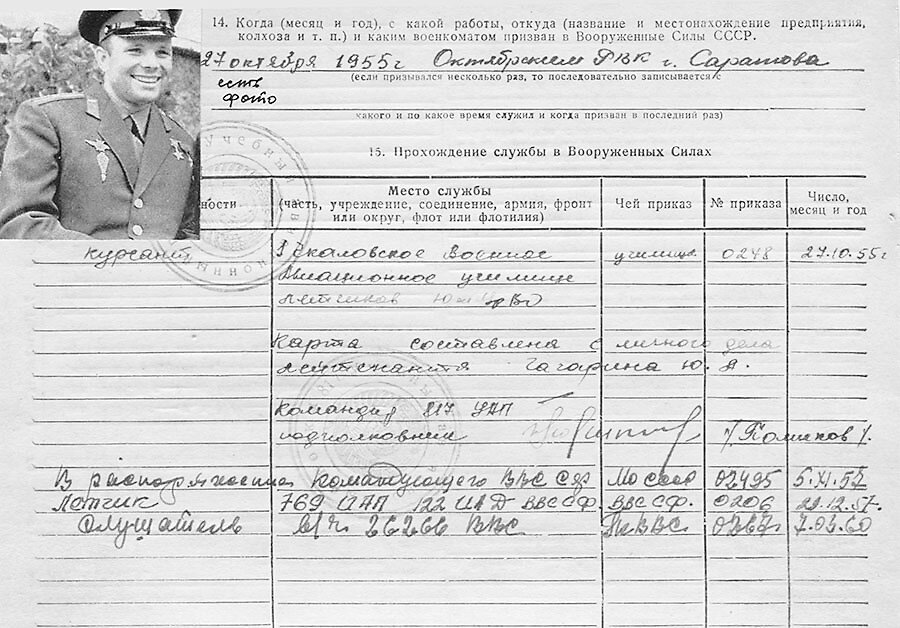 14. Когда (месяц и год), с какой работы, откуда (название и местонахождение предприятия,
колхоза и т. п.) и каким военкоматом призван в Вооруженные Силы СССР.
27 октября 1955 г. Октябрьским РВК г. Саратова
(если призывался несколько раз, то последовательно записывается с
есть
фото
какого и по какое время служил и когда призван в последний раз)
15. Прохождение службы в Вооруженных Силах
ности
Место службы
(часть, учреждение, соединение, армия, фронт
или округ, флот или флотилия)
Чей приказ
№ приказа
Число,
месяц и год
курсант Чкаловское Военное училища 0248 27.10.55г
Авиационное училище
летчиков
Карта составлена с личного дела
лейтенанта Гагарина Ю. А.
Командир УАП
подполковник
В распоряжении Командующего ВВС СФ 02495 5.XI.57
Летчик 769 ИАП 122 ИАД ВВС СФ. ВВС СФ. 0206 29.12.57г
Слушатель в/ч. 26266 ВВС ГК ВВС. 0267 7.03.60